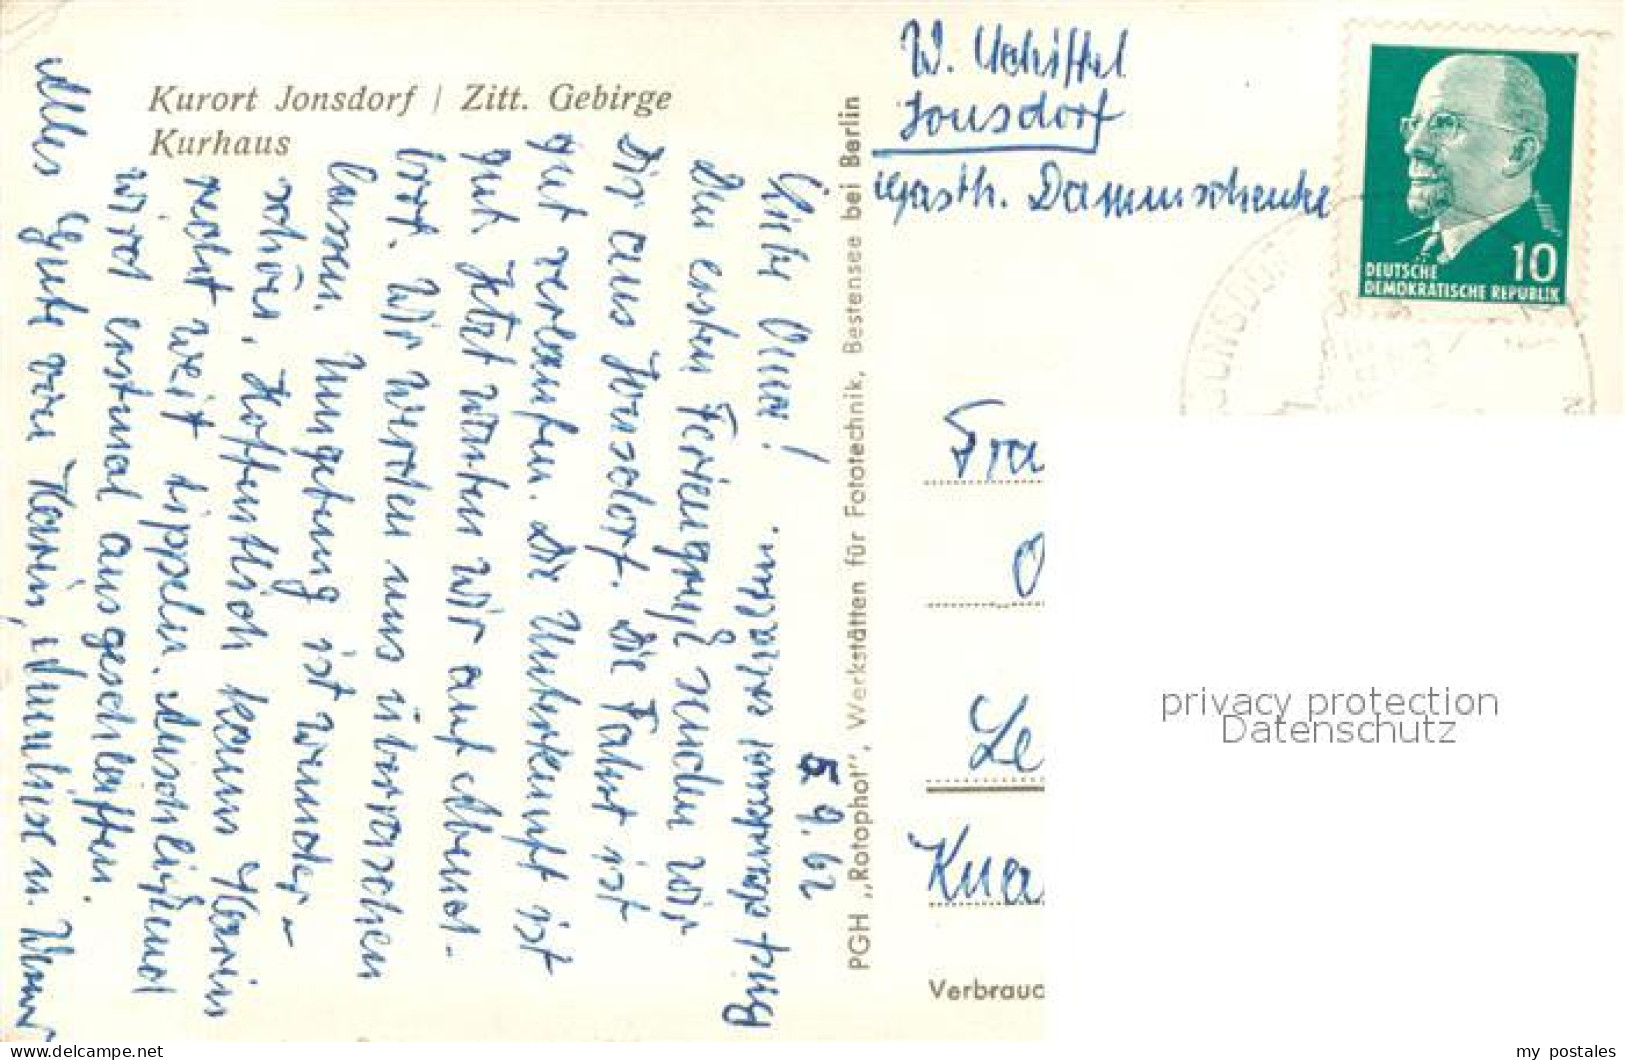 Kurort Jonsdorf / Zitt. Gebirge
Kurhaus
5. 9. 62
Liebe Oma!
Den ersten Feriengruß senden wir
Dir aus Jonsdorf. Die Fahrt ist
gut verlaufen. Die Unterkunft ist
gut. Jetzt warten wir auf Abend-
brot. Wir werden uns überraschen
lassen. Umgebung ist wunder-
schön. Hoffentlich kann Karin
recht weit tippeln. Anschließend
wird erstmal ausgeschlaffen.
Alles Gute von Karin, Annelise u.
Brief dankend erhalten.
PGH „Rotophot", Werkstätten für Fototechnik, Bestensee bei Berlin
W. Schiffel
Jonsdorf
Gasth. Dammschenke
DEUTSCHE
DEMOKRATISCHE REPUBLIK
10
JONSDORF
Fra
O
Le
Kna
Verbrauc
privacy protection
Datenschutz
© delcampe.net
my_postales